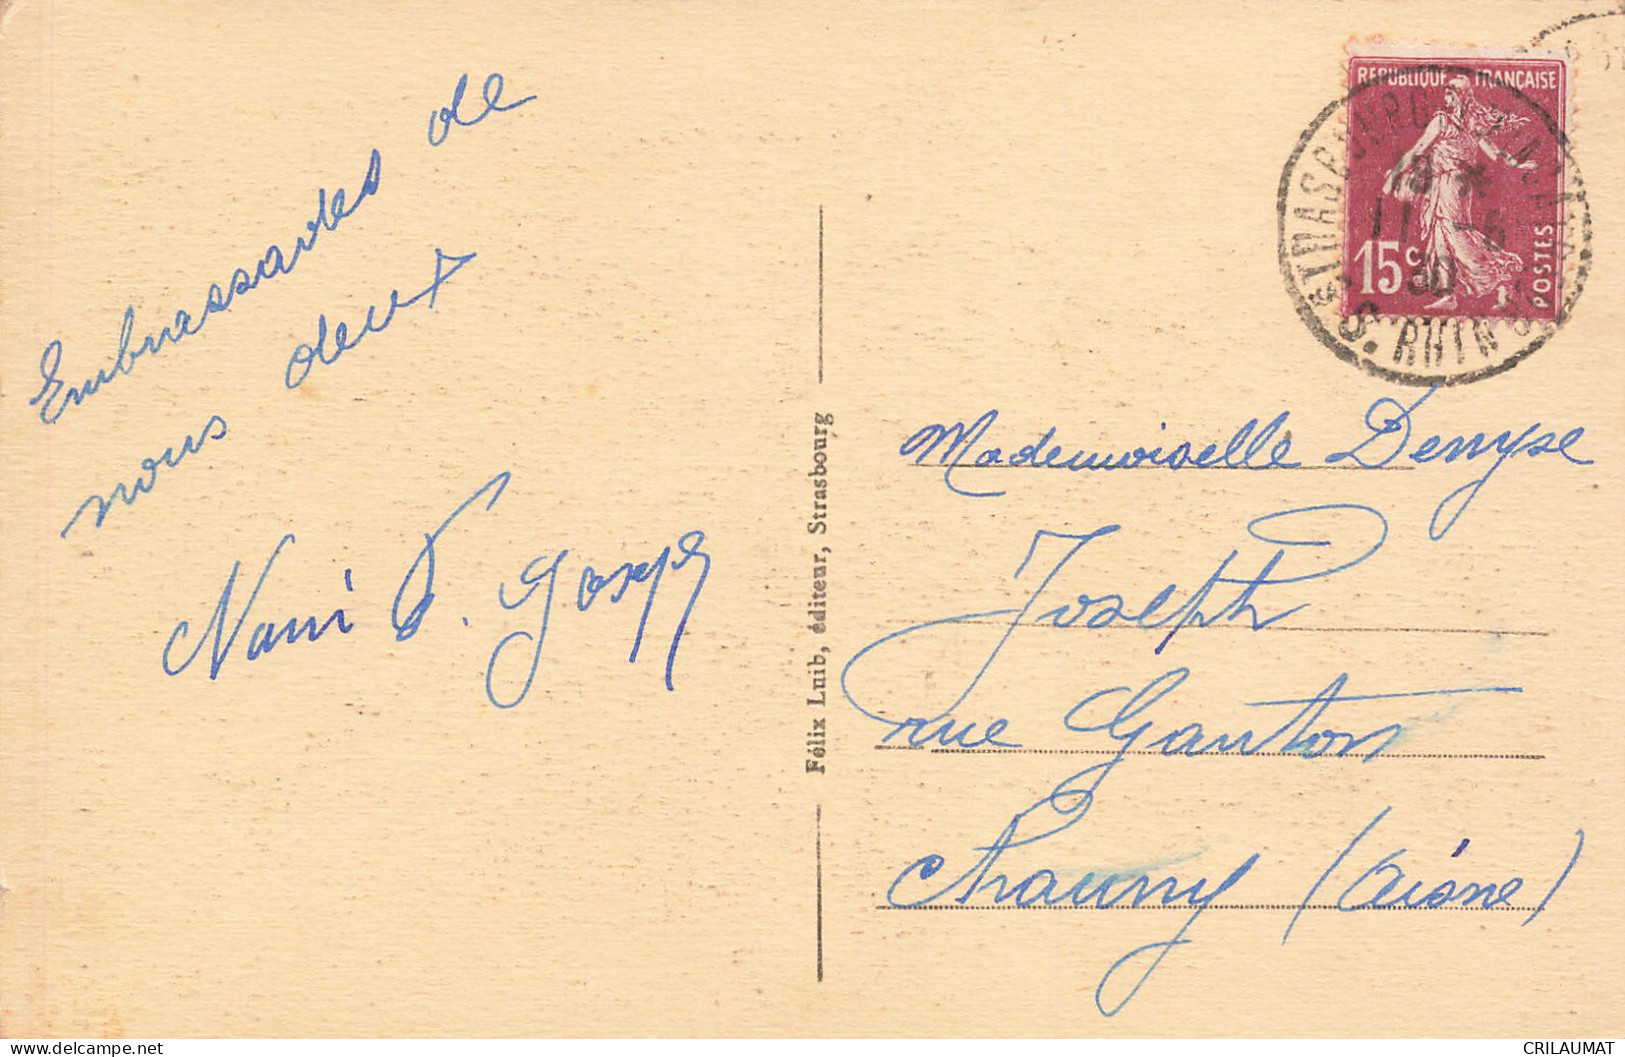 Embrassades de
nous deux
Nani
Félix Luib, éditeur, Strasbourg
REPUBLIQUE FRANÇAISE
15c
POSTES
STRASBOURG
18 *
11 -6
30
B. RHIN
Mademoiselle Denyse
Joseph
rue Ganton
Chauny (Aisne)
www.delcampe.net
CRILAUMAT